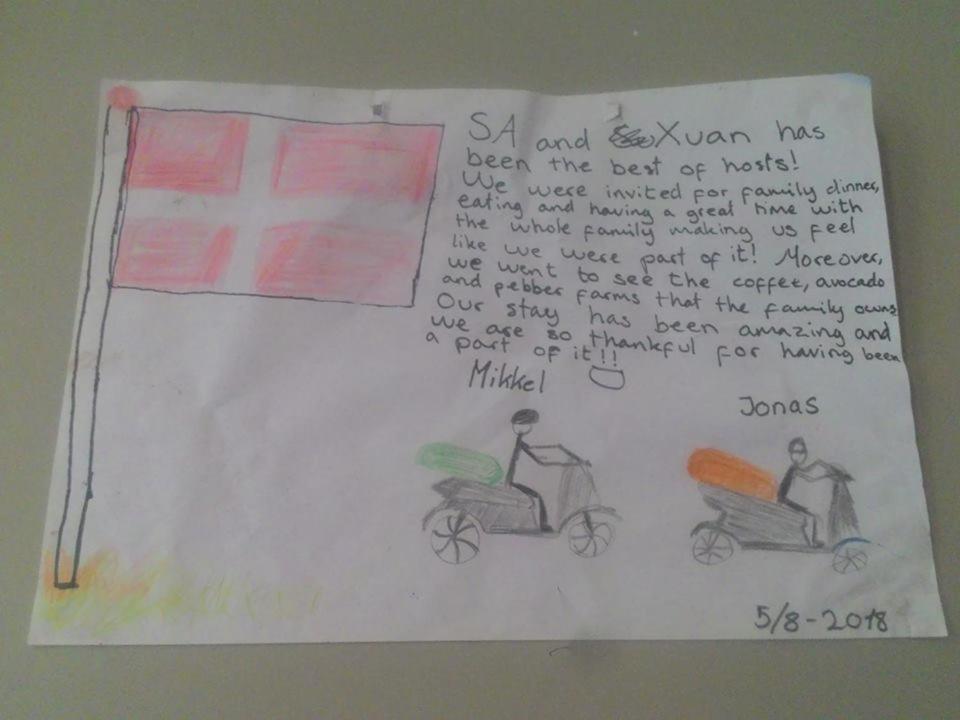 SA and Xuan has
been the best of hosts!
We were invited for family dinner,
eating and having a great time with
the whole family making us feel
like we were part of it! Moreover,
we went to see the coffee, avocado
and pebber farms that the family owns
Our stay has been amazing and
we are so thankful for having been
a part of it!!
Mikkel
Jonas
5/8-2018